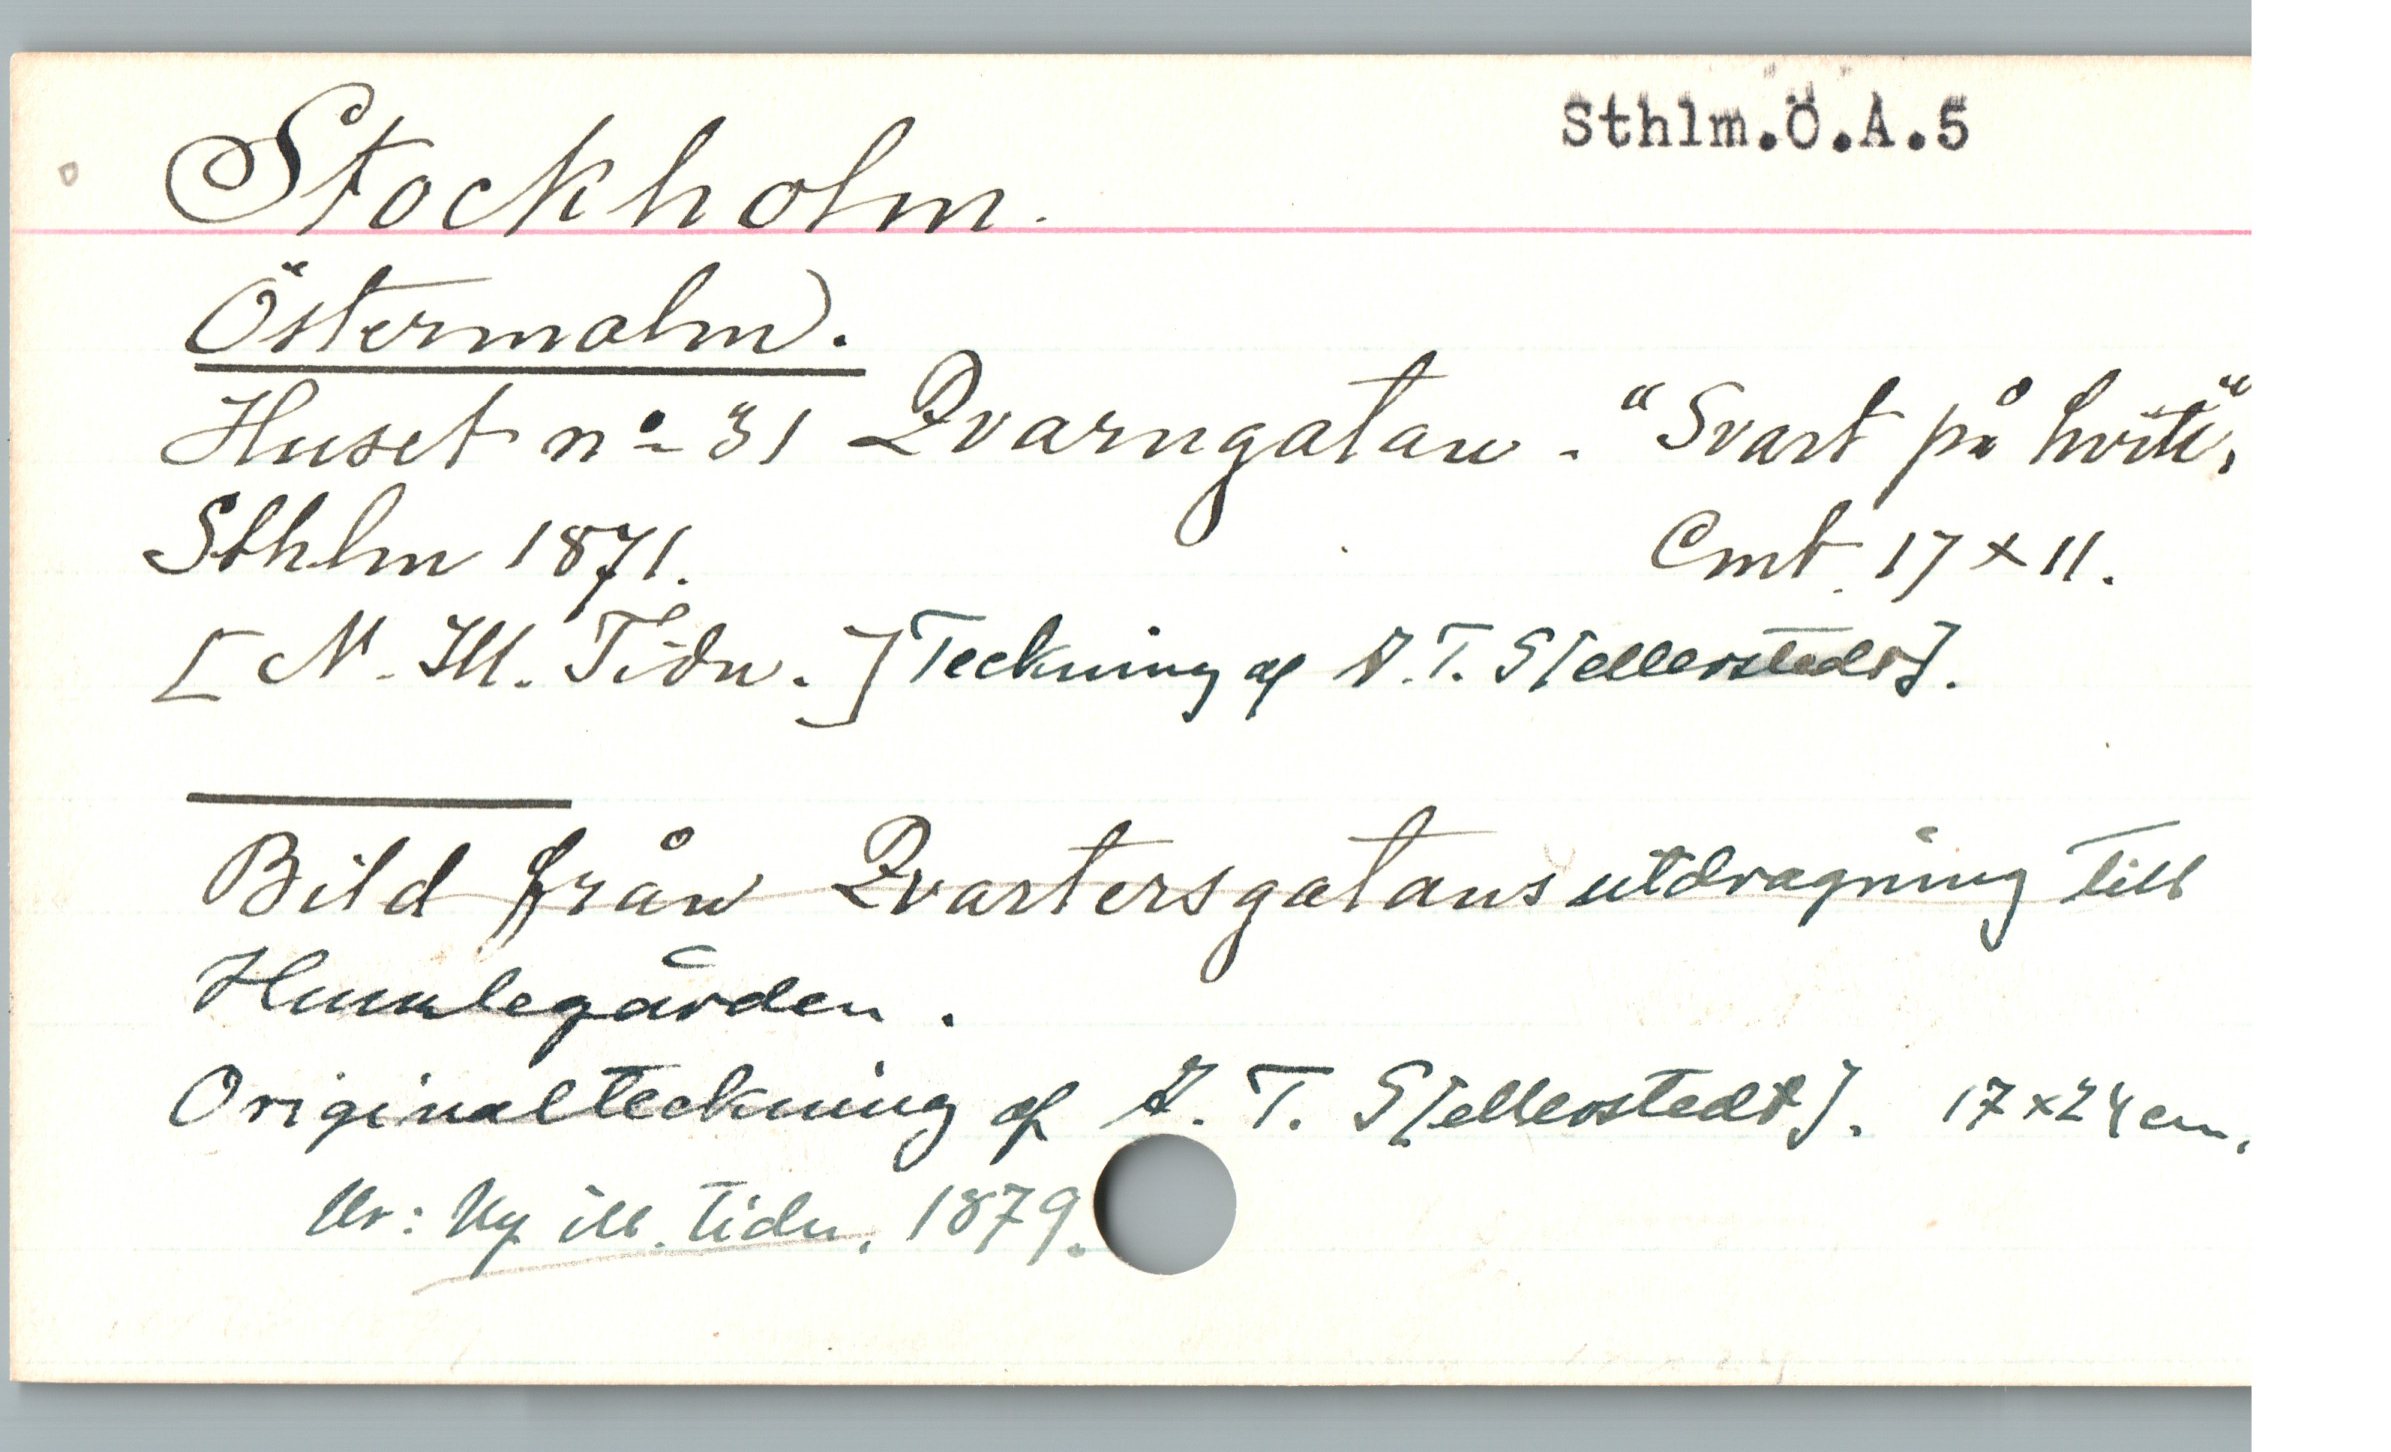 Sthlm.Ö.A.5
Stockholm.
Östermalm.
Huset nº 31 Qvarngatan. "Svart på hvitt",
Sthlm 1871. Cmt. 17 x 11.
[N. Ill. Tidn.] Teckning af A. T. G[ellerstedt].
Bild från Qvartersgatans utdragning till
Humlegården.
Originalteckning af A. T. G[ellerstedt]. 17x24 cm.
Ur: Ny ill. tidn. 1879.